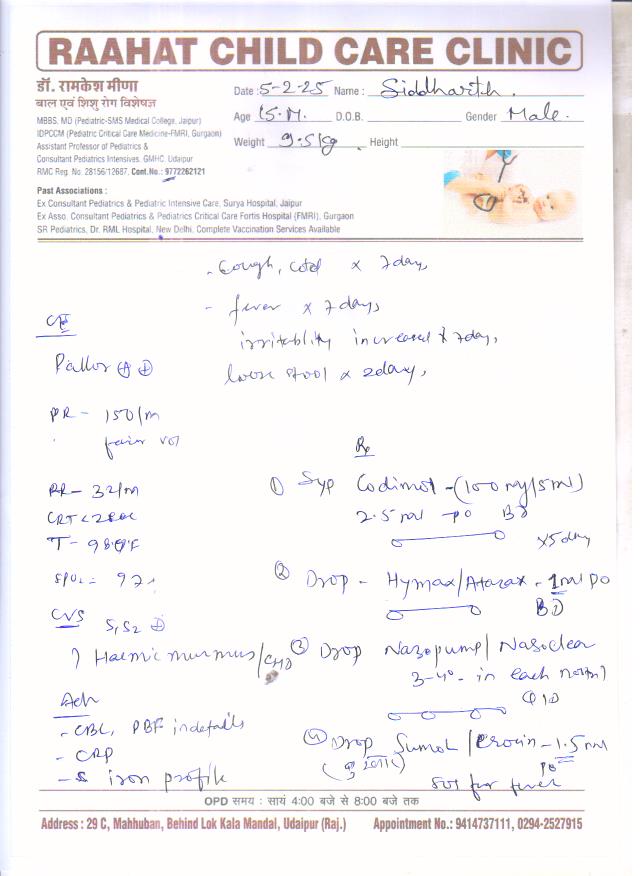 RAAHAT CHILD CARE CLINIC
डॉ. रामकेश मीणा
बाल एवं शिशु रोग विशेषज्ञ
MBBS, MD (Pediatric-SMS Medical College, Jaipur)
IDPCCM (Pediatric Critical Care Medicine-FMRI, Gurgaon)
Assistant Professor of Pediatrics &
Consultant Pediatrics Intensives, GMHC, Udaipur
RMC Reg. No. 28156/12687, Cont.No.: 9772262121
Date : 5-2-25 Name : Siddharth
Age 15 M. D.O.B. Gender Male
Weight 9.5 kg Height
Past Associations :
Ex Consultant Pediatrics & Pediatric Intensive Care, Surya Hospital, Jaipur
Ex Asso. Consultant Pediatrics & Pediatrics Critical Care Fortis Hospital (FMRI), Gurgaon
SR Pediatrics, Dr. RML Hospital, New Delhi, Complete Vaccination Services Available
- Cough, cold x 7 days
- fever x 7 days
irritablity increased x 7 days
loose stool x 2 days
Pallor
PR - 150/m
RR - 32/m
CRT < 2 sec
SPO2 = 97
CVS S1S2
? Haemic murmur/CHD
Adv
- CBC, PBF in details
- CRP
- S iron profile
Rx
① Syp Codimol - (100 mg/5ml)
2.5 ml PO BD
x 5 day
② Drop - Hymax/Atarax - 1 ml PO
BD
③ Drop Nazopump/Nasoclear
3-4 - in each nostril
QID
④ Drop Sumol/Crocin - 1.5 ml
PO
SOS for fever
OPD समय : सायं 4:00 बजे से 8:00 बजे तक
Address : 29 C, Mahhuban, Behind Lok Kala Mandal, Udaipur (Raj.) Appointment No.: 9414737111, 0294-2527915